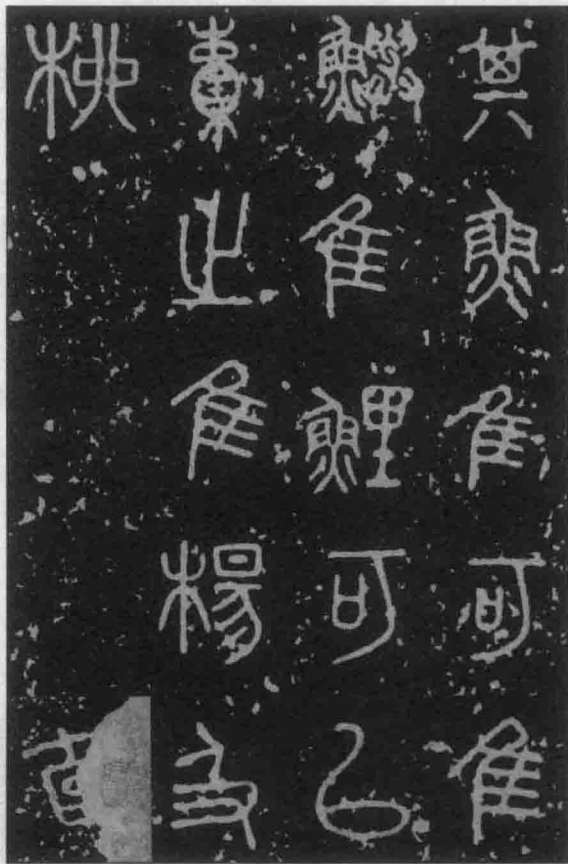 其魚隹可隹
鱮隹鯉可㠯
橐之隹楊及
柳